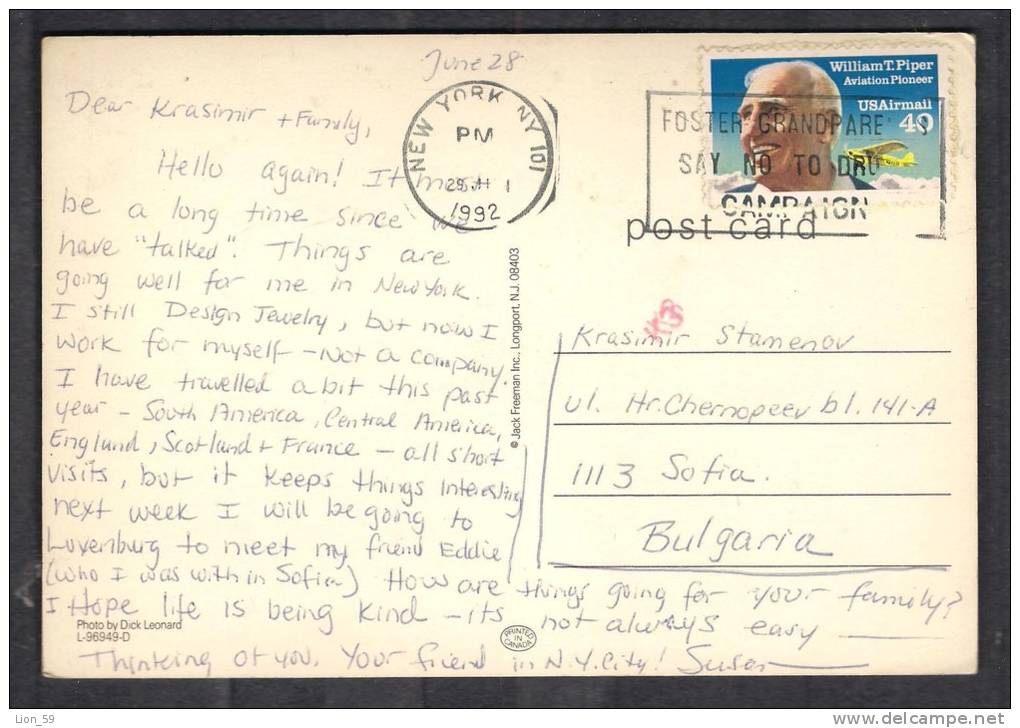 June 28
Dear Krasimir + Family,
Hello again! It must
be a long time since we
have "talked". Things are
going well for me in New York.
I still Design Jewelry, but now I
work for myself - Not a company.
I have travelled a bit this past
year - South America, Central America,
England, Scotland + France - all short
visits, but it keeps things interesting
next week I will be going to
Luxenburg to meet my friend Eddie
(who I was with in Sofia) How are things going for your family?
I Hope life is being kind - its not always easy
Thinking of you. Your friend in N.Y. City! Susan
Photo by Dick Leonard
L-96949-D
PRINTED IN CANADA
© Jack Freeman Inc., Longport, N.J. 08403
NEW YORK NY 101
PM
1992
William T. Piper
Aviation Pioneer
USAirmail
40
FOSTER GRANDPARE
SAY NO TO DRU
CAMPAIGN
post card
Krasimir Stamenov
ul. Hr. Chernopeev bl. 141-A
1113 Sofia.
Bulgaria
Lion_59
http://www.delcampe.net